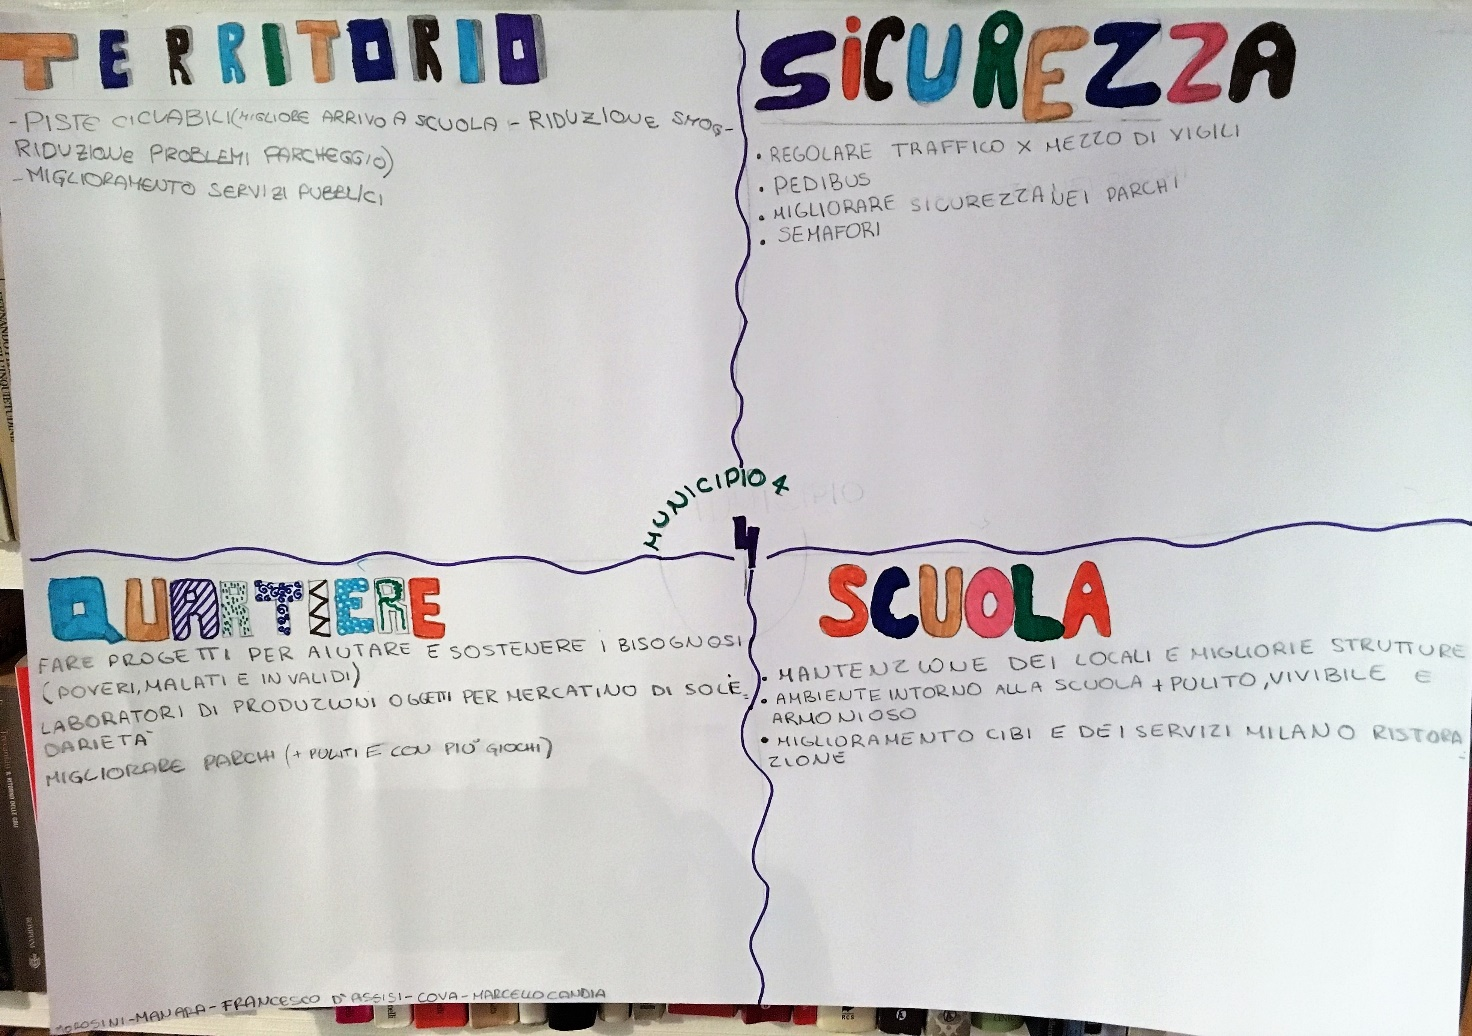 TERRITORIO
- PISTE CICLABILI (MIGLIORE ARRIVO A SCUOLA - RIDUZIONE SMOG -
RIDUZIONE PROBLEMI PARCHEGGIO)
- MIGLIORAMENTO SERVIZI PUBBLICI
SiCUREZZA
• REGOLARE TRAFFICO X MEZZO DI VIGILI
• PEDIBUS
• MIGLIORARE SICUREZZA NEI PARCHI
• SEMAFORI
MUNICIPIO 4
4
QUARTIERE
FARE PROGETTI PER AIUTARE E SOSTENERE i BISOGNOSI
(POVERI, MALATI E INVALIDI)
LABORATORI DI PRODUZIONI OGGETTI PER MERCATINO DI SOLI-
DARIETA'
MIGLIORARE PARCHI (+ PULITI E CON PIU' GIOCHI)
SCUOLA
• MANTENZIONE DEI LOCALI E MIGLIORIE STRUTTURE
• AMBIENTE INTORNO ALLA SCUOLA + PULITO, VIVIBILE E
ARMONIOSO
• MIGLIORAMENTO CIBI E DEI SERVIZI MILANO RISTORA-
ZIONE
MOROSINI - MANARA - FRANCESCO D'ASSISI - COVA - MARCELLO CANDIA
RCS